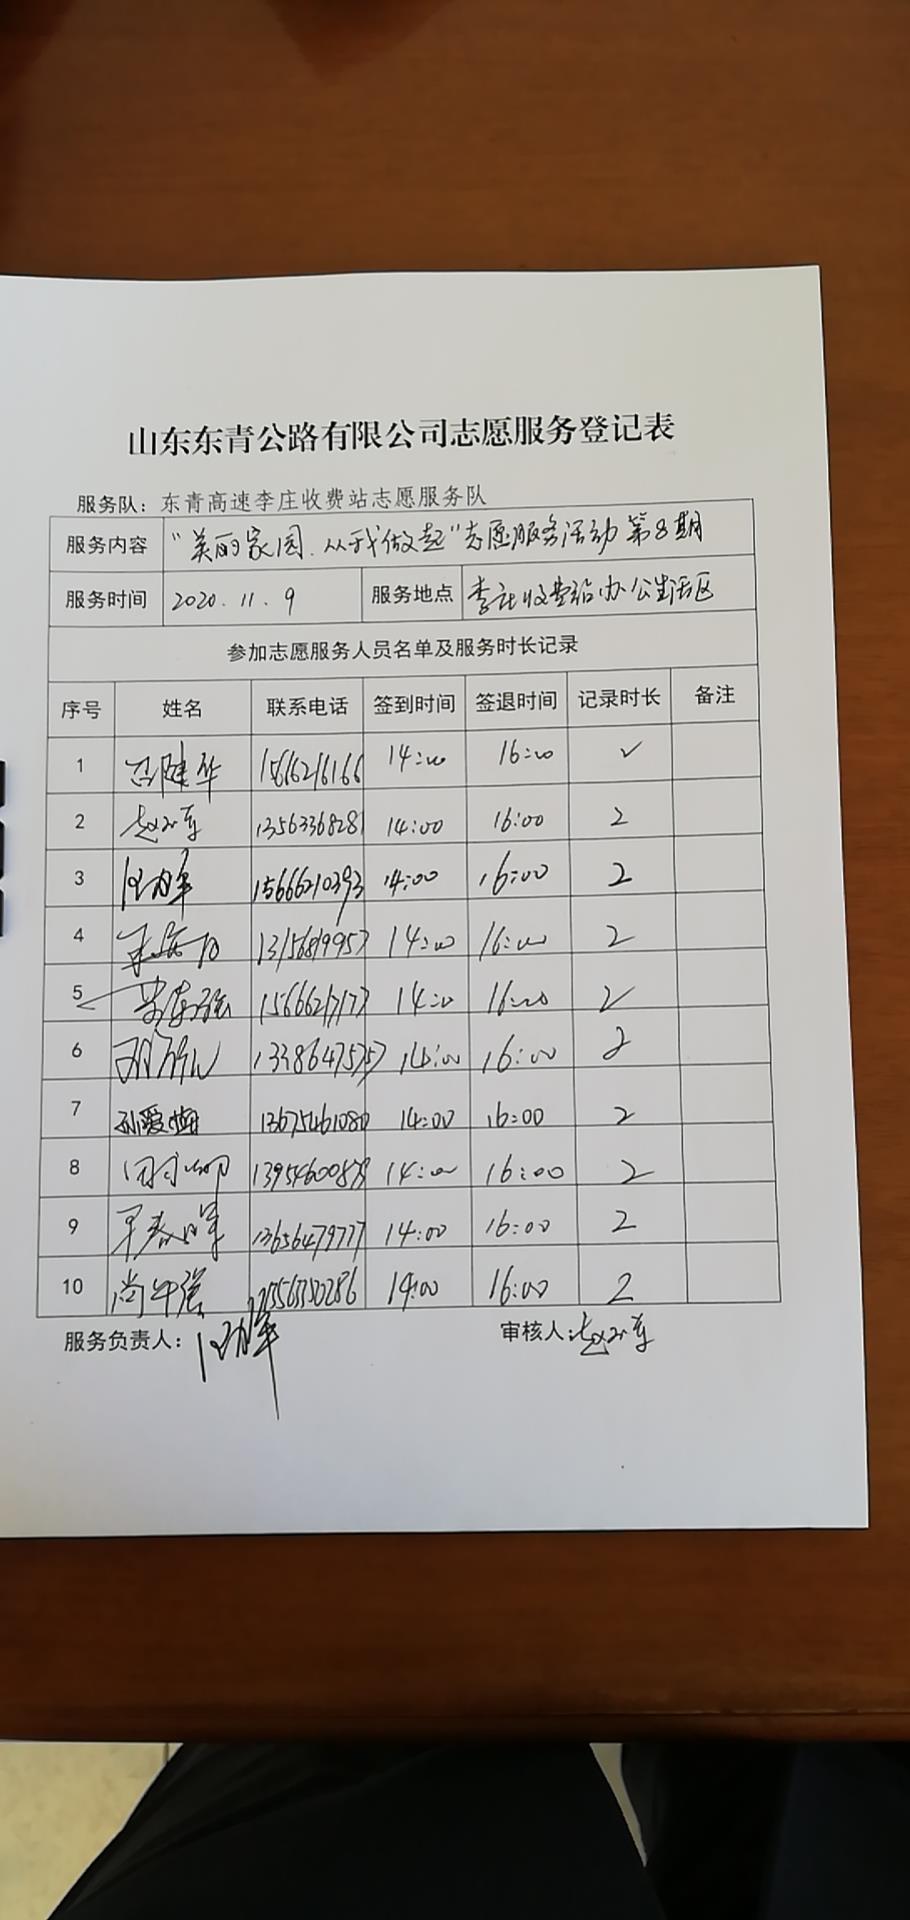 山东东青公路有限公司志愿服务登记表
服务队：东青高速李庄收费站志愿服务队
服务内容 “美丽家园.从我做起”志愿服务活动第8期
服务时间 2020.11.9 服务地点 李庄收费站办公生活区
参加志愿服务人员名单及服务时长记录
序号 姓名 联系电话 签到时间 签退时间 记录时长 备注
1 15666216166 14:00 16:00 2
2 13563368281 14:00 16:00 2
3 15666210393 14:00 16:00 2
4 13156819957 14:00 16:00 2
5 15666217177 14:00 16:00 2
6 14:00 16:00 2
7 孙爱梅 13675461080 14:00 16:00 2
8 14:00 16:00 2
9 13656479777 14:00 16:00 2
10 尚午强 14:00 16:00 2
服务负责人： 审核人：